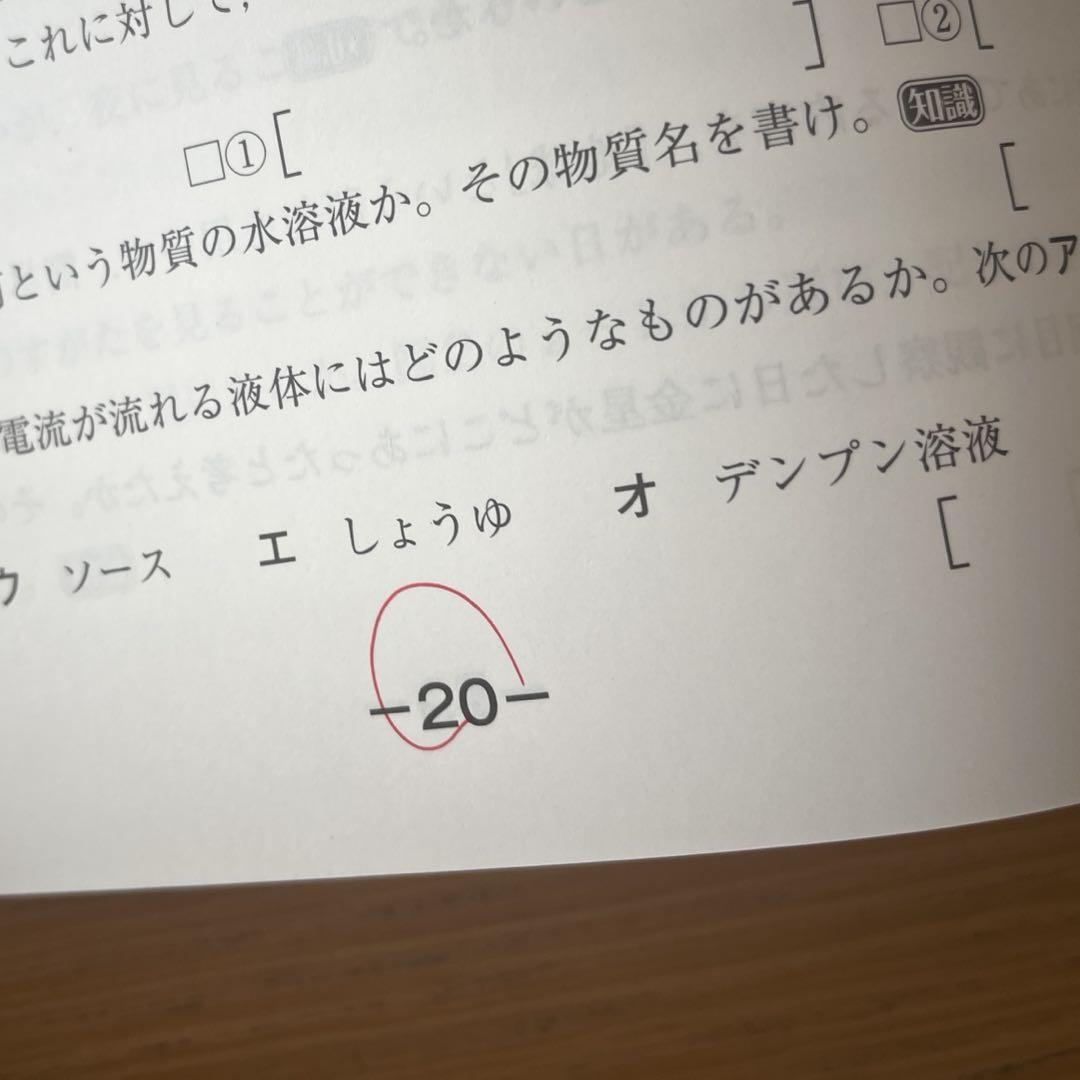 これに対して,
] □②[
□①[
という物質の水溶液か。その物質名を書け。 知識
[
電流が流れる液体にはどのようなものがあるか。次のア
ウ ソース エ しょうゆ オ デンプン溶液
[
-20-